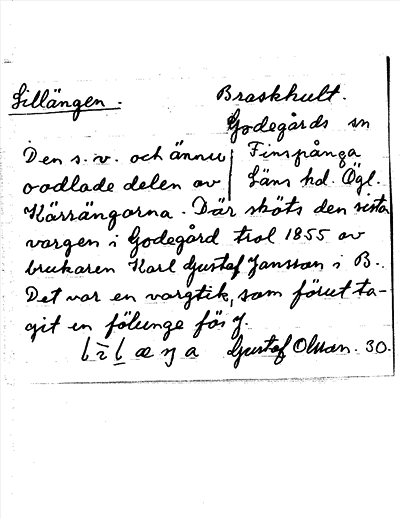 Lillängen. Braskhult.
Godegårds sn
Den s.v. och ännu Finspånga
oodlade delen av läns hd. Ögl.
Kärrängarna. Där sköts den sista
vargen i Godegård trol 1855 av
brukaren Karl Gustaf Jansson i B.
Det var en vargtik, som förut ta-
git en fölunge för J.
Gustaf Olsson. 30.